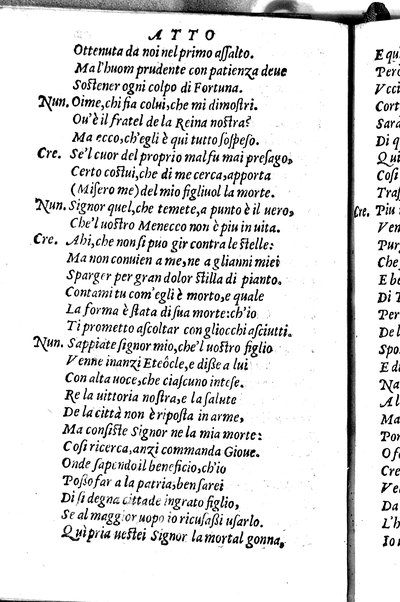 ATTO
Ottenuta da noi nel primo assalto.
Ma l'huom prudente con patienza deue
Sostener ogni colpo di Fortuna.
Nun. Oime, chi fia colui, che mi dimostri.
Ou'è il fratel de la Reina nostra?
Ma ecco, ch'egli è qui tutto sospeso.
Cre. Se'l cuor del proprio mal fu mai presago,
Certo costui, che di me cerca, apporta
(Misero me) del mio figliuol la morte.
Nun. Signor quel, che temete, a punto è il uero,
Che'l uostro Menecco non è piu in uita.
Cre. Ahi, che non si puo gir contra le stelle:
Ma non conuien a me, ne a gli anni miei
Sparger per gran dolor stilla di pianto.
Contami tu com'egli è morto, e quale
La forma è stata di sua morte: ch'io
Ti prometto ascoltar con gliocchi asciutti.
Nun. Sappiate signor mio, che'l uostro figlio
Venne inanzi Eteócle, e disse a lui
Con alta uoce, che ciascuno intese.
Re la uittoria nostra, e la salute
De la città non è riposta in arme,
Ma consiste Signor ne la mia morte:
Cosi ricerca, anzi commanda Gioue.
Onde sapendo il beneficio, ch'io
Posso far a la patria, ben sarei
Di si degna cittade ingrato figlio,
Se al maggior uopo io ricusassi usarlo.
Quì pria uestei Signor la mortal gonna,
E qu
Però
Vcci
Cort
Sarà
Di q
Qui
Cosi
Tras
Cre. Piu
Ven
Pur
Che
E b
Di T
Per
De l
Spo
E d
Na
Al
Ma
Pa
O f
Cre
Ve
Da
L'h
Io n